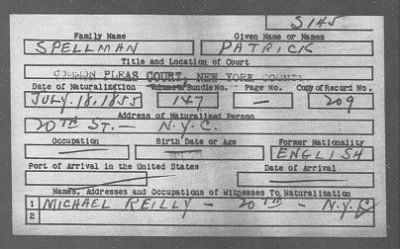 S145
Family Name Given Name or Names
SPELLMAN PATRICK
Title and Location of Court
COMMON PLEAS COURT, NEW YORK COUNTY
Date of Naturalization Volume or Bundle No. Page No. Copy of Record No.
JULY.18.1855 147 — 209
Address of Naturalized Person
20TH ST. — N.Y.C.
Occupation Birth Date or Age Former Nationality
— — ENGLISH
Port of Arrival in the United States Date of Arrival
— —
Names, Addresses and Occupations of Witnesses To Naturalization
1 MICHAEL REILLY — 20TH — N.Y.C
2